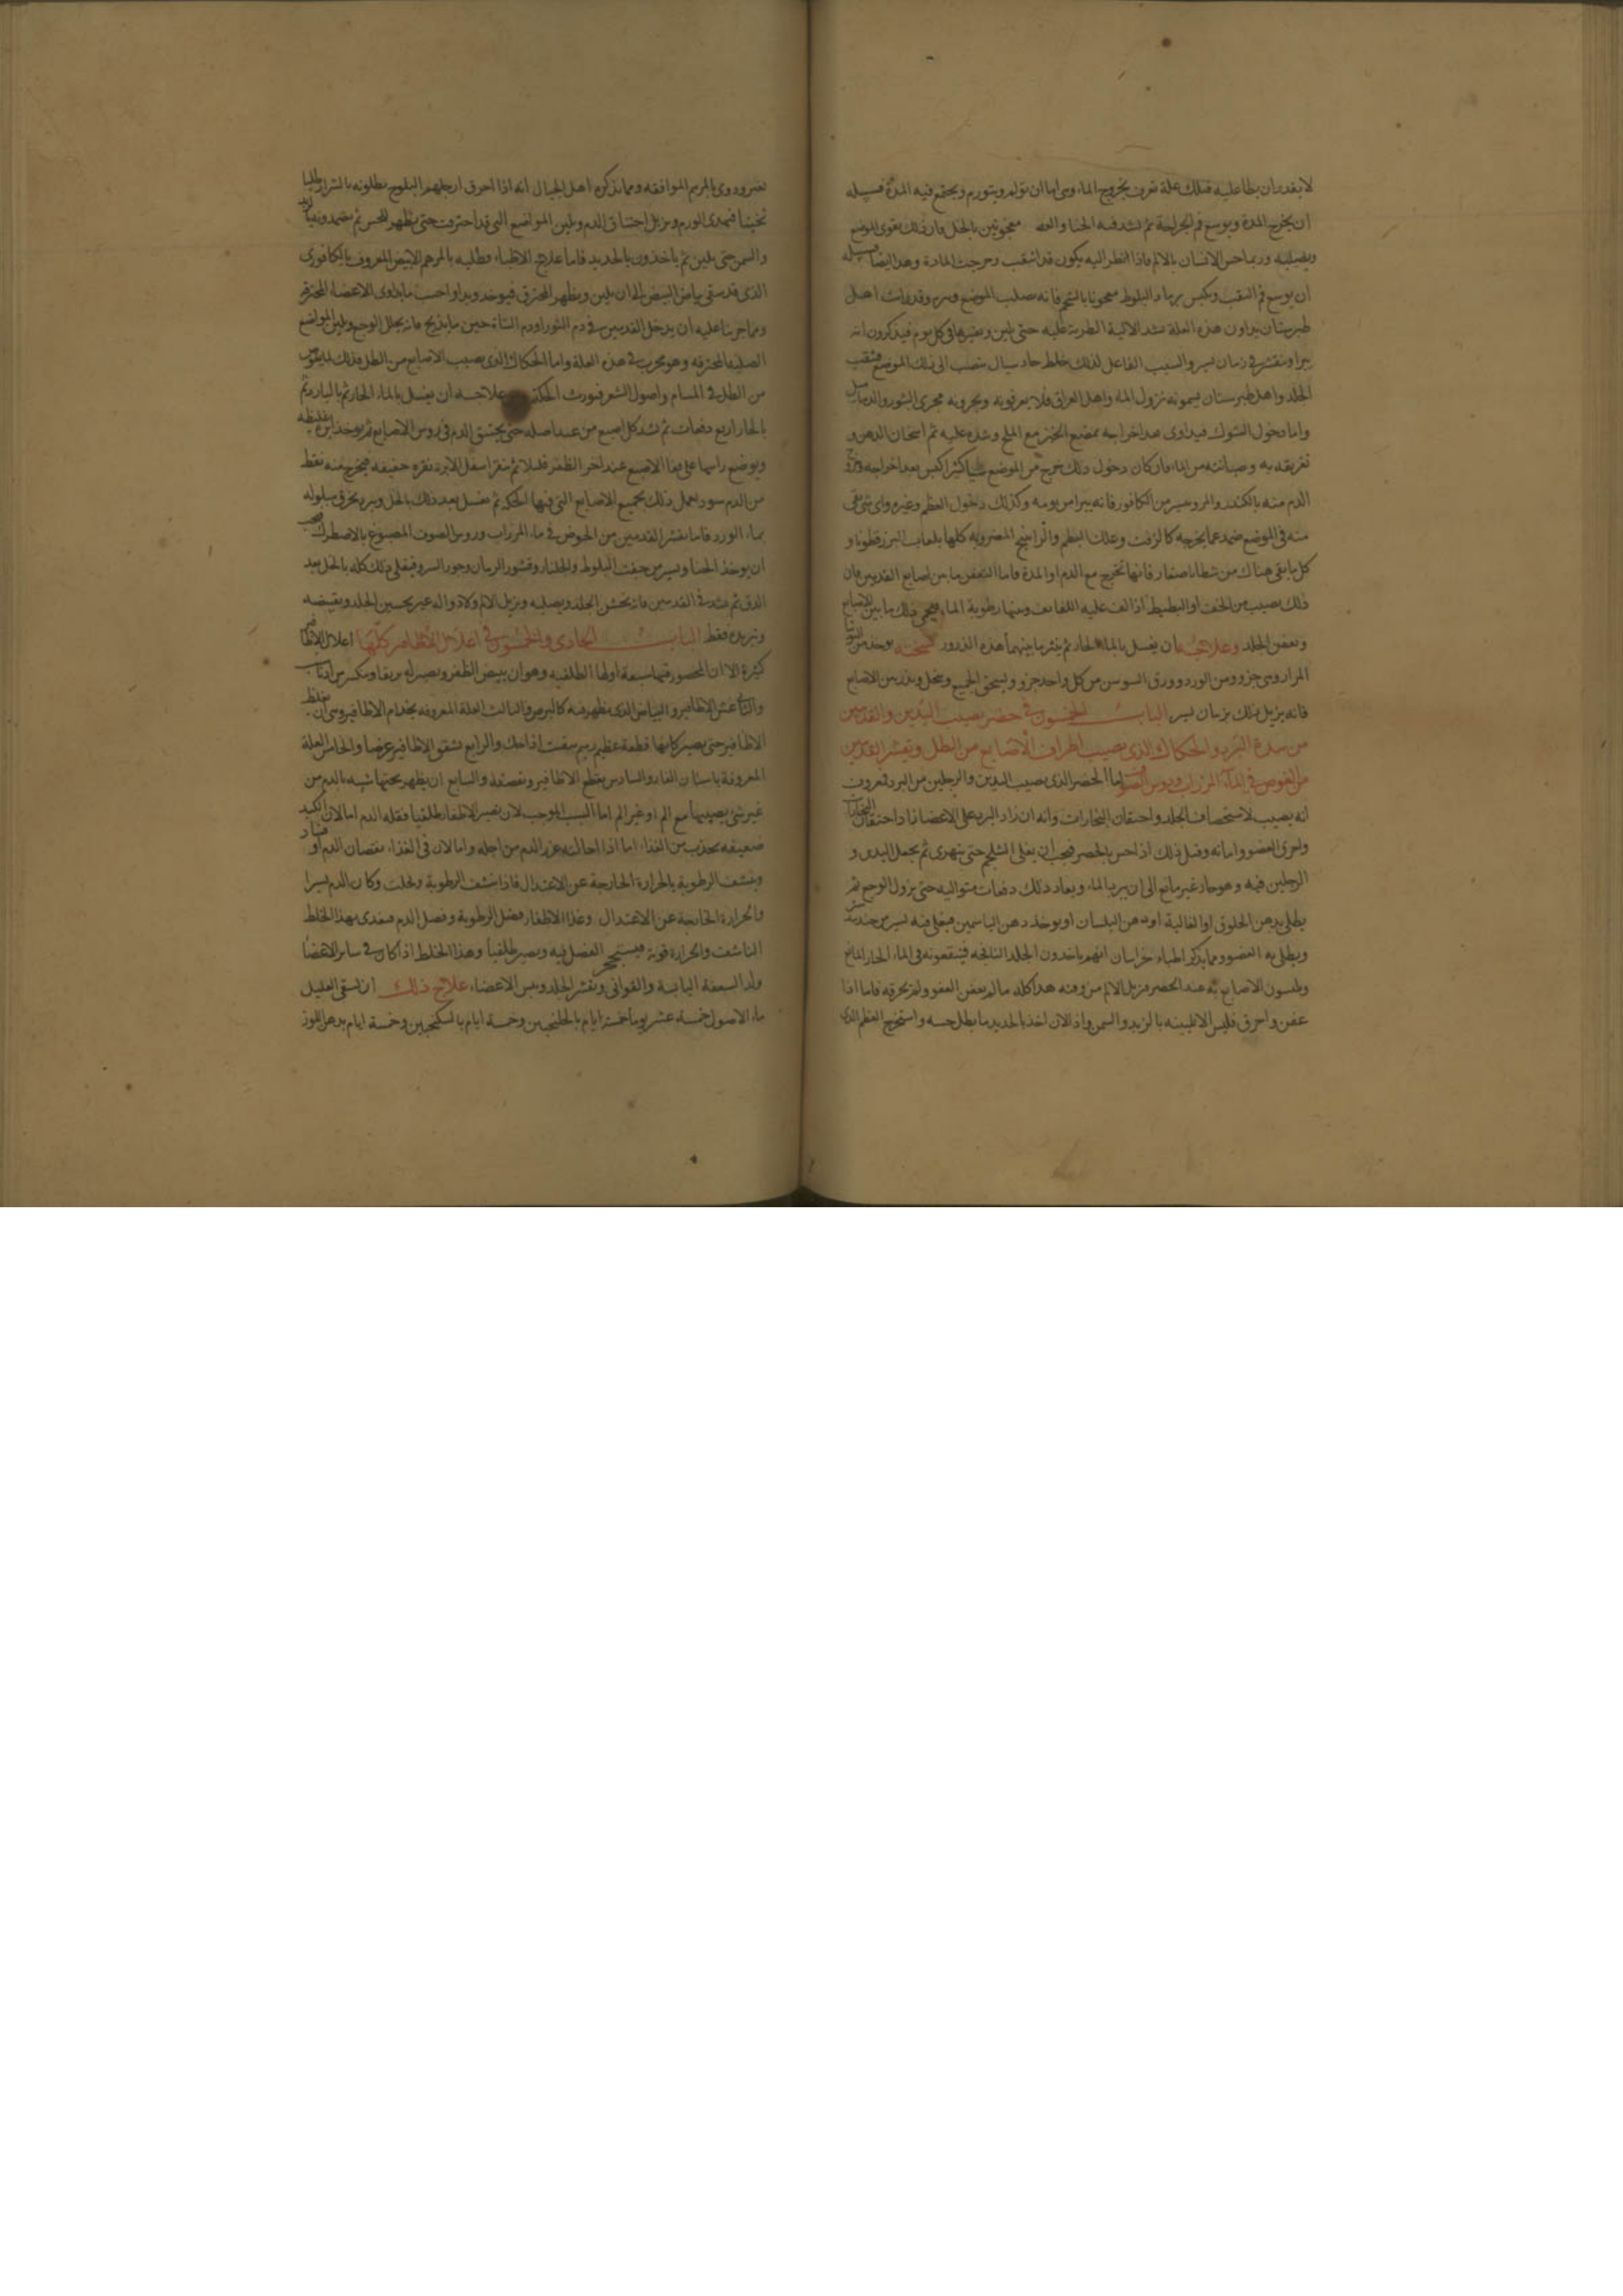 لا يقدر ان يطأ عليه فتلك علة تعرف بخروج الماء وهى اما ان تولم ويتورم ويجتمع فيه المدة فسبيله
ان يخرج المدة ويوسع فم الجراحة ثم تشد فيه الحنا والعفص معجونين بالخل فان ذلك يقوى الموضع
ويصلبه وربما حس الانسان بالالم فاذا انظر اليه يكون قد انثقب وخرجت المادة وهذا ايضا سبيله
ان يوسع فم الثقب ويكبس برماد البلوط معجونا بالشحم فانه يصلب الموضع وقد رأيت اهل
طبرستان يداون هذه العلة بشد الالية الطرية عليه حتى يلين ويغيرها فى كل يوم فيذكرون انه
يبرا وينقشر فى زمان يسير والسبب الفاعل لذلك خلط حاد سيال ينصب الى ذلك الموضع فيثقب
الجلد واهل طبرستان يسمونه نزول الماء واهل العراق فلا يعرفونه ويجرونه مجرى البثور والدماميل
واما دخول الشوك فيداوى بعد اخراجه بمضيغ الخبز مع الملح وشده عليه ثم اسخان الدهن و
تغريقه به وصيانته من الماء فان كان دخول ذلك خرج من الموضع شيا كثيرا كبس بعد اخراجه وخروج
الدم منه بالكندر والمر ويسير من الكافور فانه يبرا من يومه وكذلك دخول العظم وغيره واى شى بقى
منه فى الموضع ضمد بما يخرجه كالزفت وعلك البطم والراتينج المضروبة كلها بلعاب البزرقطونا و
كل ما بقى هناك من شظايا صغار فانها تخرج مع الدم او المدة فاما التعفن ما بين اصابع القدمين فان
ذلك يصيب من الخف او البطيط اذا لف عليه اللفائف ومنها رطوبة الماء فيحمى ذلك ما بين الاصابع
ويعفن الجلد وعلاجه ان يغسل بالماء الحار ثم ينثر ما بينهما هذه الذرور نسخته يوخذ من التوتيا
المرازبى جزو ومن الورد وورق السوسن من كل واحد جزو ويسحق الجميع وينخل ويذر بين الاصابع
فانه يزيل ذلك بزمان يسير الباب الخمسون فى حصر يصيب اليدين والقدمين
من شدة البرد والحكاك الذى يصيب اطراف الاصابع من الطل وتقشر القدمين
من الغوص فى الماء المزراب ودوس الصوف اما الحصر الذى يصيب اليدين والرجلين من البرد فمعروف
انه يصيب لاستحصاف الجلد واحتقان البخارات وانه ان زاد البرد على الاعضا زاد احتقان البخارات
واحرق العضو واماته وقبل ذلك اذا حس بالحصر فيجب ان يغلى الشلجم حتى يتهرى ثم يجعل اليدين و
الرجلين فيه وهو حار غير مانع الى ان يبرد الماء ويعاد ذلك دفعات متواليه حتى يزول الوجع ثم
يطلى بدهن الخلوق او الغالية او دهن البلسان او يوخذ دهن الياسمين فيغلى فيه يسير من جندبيدستر
ويطلى به العضو ومما يذكر اطباء خراسان انهم ياخذون الجلد النافجه فينقعونه فى الماء الحار
ويلبسون الاصابع به عند الحصر فيزيل الالم من وقته هذا كله ما لم يعفن العضو ولم يحرقه فاما اذا
عفن واحرق فليس الا تليينه بالزبد والسمن واذا لان اخذ بالحديد ما بطل حسه واستخرج العظم الذى
تغير ودوى بالمرهم الموافقه ومما يذكره اهل الجبال انه اذا احرق ارجلهم الثلوج يطلونه بالشراب طليا
ثخينا فيهدى الورم ويزيل احتناق الدم ويلين المواضع التى قد احترقت حتى يظهر للحس ثم يضمدونه بالزبد
والسمن حتى يلين ثم ياخذون بالحديد فاما علاج الاطباء وطليه بالمرهم الابيض المعروف بالكافورى
الذى قد سقى بياض البيض الى ان يلين ويظهر المحترق فيوخذ ويداوا حسب ما يداوى الاعضاء المحترقه
ومما جربنا عليه ان يدخل القدمين فى دم الثور او دم الشاة حين ما يذبح فانه يحلل الوجع ويلين المواضع
الصلبه المحترقه وهو مجرب فى هذه العلة واما الحكاك الذى يصيب الاصابع من الطل فذلك لما يغوص
من الطل فى المسام واصول الشعر فيورث الحكة علاجه ان يغسل بالماء الحار ثم بالبارد ثم
بالحار اربع دفعات ثم تشد كل اصبع من عند اصله حتى يحتقن الدم فى روس الاصابع ثم يوخذ ابرة غليظه
ويوضع راسها على قفا الاصبع عند اخر الظفر قليلا ثم ينقر اسفل الابرة نقره خفيفه فيخرج منه نقط
من الدم سود يعمل ذلك بجميع الاصابع التى فيها الحكه ثم يغسل بعد ذلك بالخل ويبرد بخرق مبلوله
بماء الورد فاما تقشر القدمين من الخوض فى ماء المزراب ودوس الصوف المصبوغ فيجب
ان يوخذ الحنا ويسير من جفت البلوط والجلنار وقشور الرمان وجوز السرو فيغلى ذلك كله بالخل بعد
الدق ثم يشد فى القدمين فانه يخشن الجلد ويصلبه ويزيل الالم ولا دوا له غير تحسين الجلد وتقبيضه
وتبريده فقط الباب الحادى والخمسون فى اعلال الاظافير كلها اعلال الاظافير
كثيرة الا ان المحصور فيها سبعة اولها الطلقيه وهو ان يبيض الظفر ويصير له بريقا وينكسر من ادنا
والثانى عشن الاظافير والبياض الذى يظهر فيه كالبرص والثالث العلة المعروفه بجذام الاظافير وهى ان يغلظ
الاظافير حتى يصير كانها قطعة عظيم رميم يتفتت اذا حك والرابع تشقق الاظافير عرضا والخامس العلة
المعروفة باسنان الفار والسادس تقطع الاظافير وتقصفه والسابع ان يظهر تحتها شبيه بالدم من
غير شى يصيبها مع الم او غير الم اما السبب الموجب لان تصير الاظفار طلقيا فقله الدم اما لان الكبد
ضعيفه يجذب من الغذاء اما اذا احالته عزر الدم من اجله واما لان فى الغذاء نقصان الدم او فساد
وينشف الرطوبة بالحرارة الخارجة عن الاعتدال فاذا نشف الرطوبة وتخلت وكان الدم يسيرا
والحرارة الخارجة عن الاعتدال وغذا الاظفار فضل الرطوبة وفضل الدم فيغدى بهذا الخلط
الناشف والحرارة قوية فيستحجر الفضل فيه ويصير طلقيا وهذا الخلط اذا كان فى ساير الاعضا
ولد السعفة اليابسة والقوابى وتقشر الجلد ويبس الاعضاء علاج ذلك ان يسقى العليل
ماء الاصول خمسة عشر يوما خمسة ايام بالجلنجبين وخمسة ايام بالسكنجبين وخمسة ايام بدهن اللوز